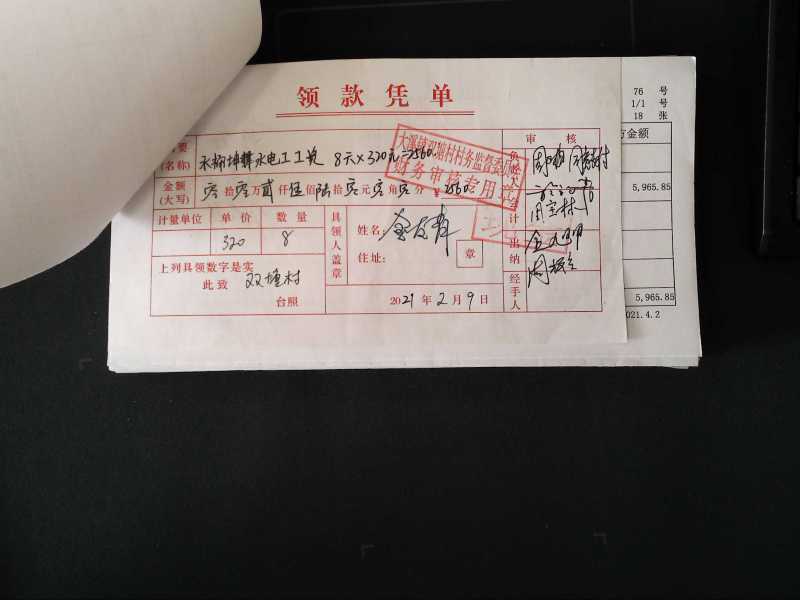 领款凭单
76 号
1/1 号
18 张
方金额
要
(名称)
水电工工资 8天×320元=2560
大溪镇双塘村村务监督委员会
财务审核专用章
审核
金额
(大写)
零拾零万贰仟伍佰陆拾零元零角零分 ¥2560
5,965.85
计量单位 单价 数量
320 8
具领人盖章
姓名:
住址:
章
会计
出纳
经手人
上列具领数字是实
此致 双塘村
台照
2021年2月9日
5,965.85
2021.4.2